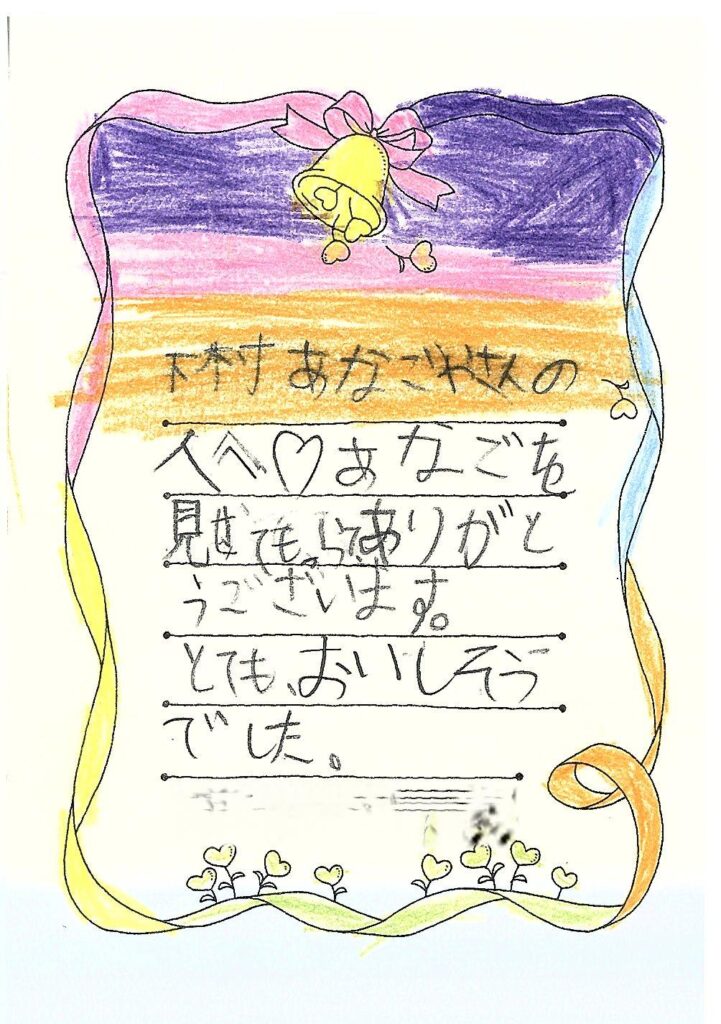 下村あなごやさんの
人へ♡あなごを
見せてもらってありがと
うございます。
とても、おいしそう
でした。